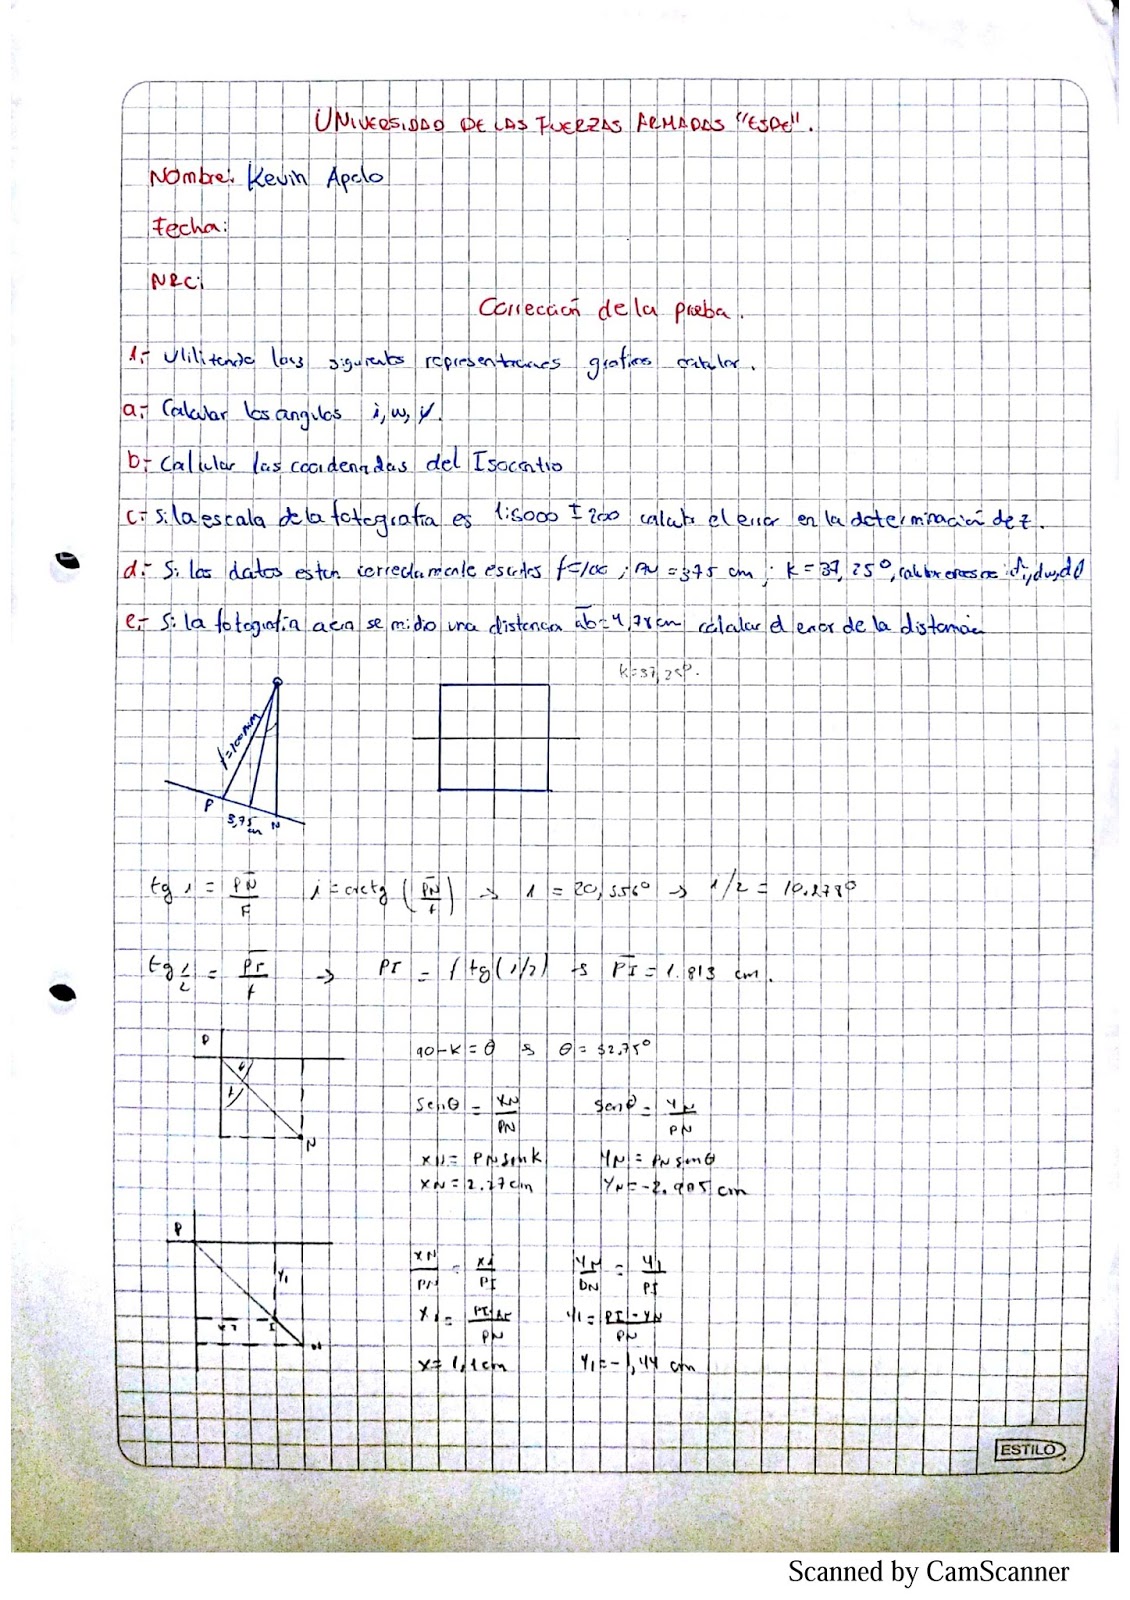 UNIVERSIDAD DE LAS FUERZAS ARMADAS "ESPE".
Nombre: Kevin Apolo
Fecha:
NRC:
Corrección de la prueba.
1.- Utilitando las siguientes representaciones graficas calcular.
a.- Calcular los angulos i, w,
b.- Calcular las coordenadas del Isocentro
c.- Si la escala de la fotografia es 1:5000 ± 200 calcule el error en la determinación de z.
d.- Si los datos estan correctamente escritos f=100 ; PN = 375 cm ; K = 37,25°, di, dw, dθ
e.- Si la fotografia aerea se midio una distancia ab=4,78cm calcular el error de la distancia
K=37,25°.
f=100mm
P 3,75 cm N
tg i = PN/F i = arctg (PN/f) → i = 20,556° → i/2 = 10.278°
tg i/2 = PI/f → PI = f tg(i/2) → PI = 1.813 cm.
P
90-K = θ → θ = 52,75°
K
Senθ = XN/PN Senθ = YN/PN
N
XN = PN sin K YN = PN sen θ
XN = 2.27cm YN = -2.985 cm
P
XN/PN = Xi/PI YN/PN = YI/PI
Y1
XI I
YI = PI - YN/PN
N
X = 1,1cm Y1 = -1,44 cm
ESTILO
Scanned by CamScanner